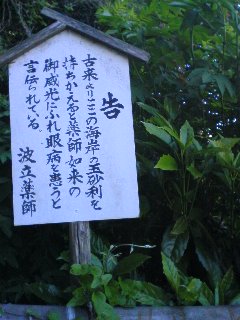 告
古来よりここの海岸の玉砂利を
持ちかえると薬師如来の
御威光にふれ眼病を患うと
言伝られている。
波立薬師